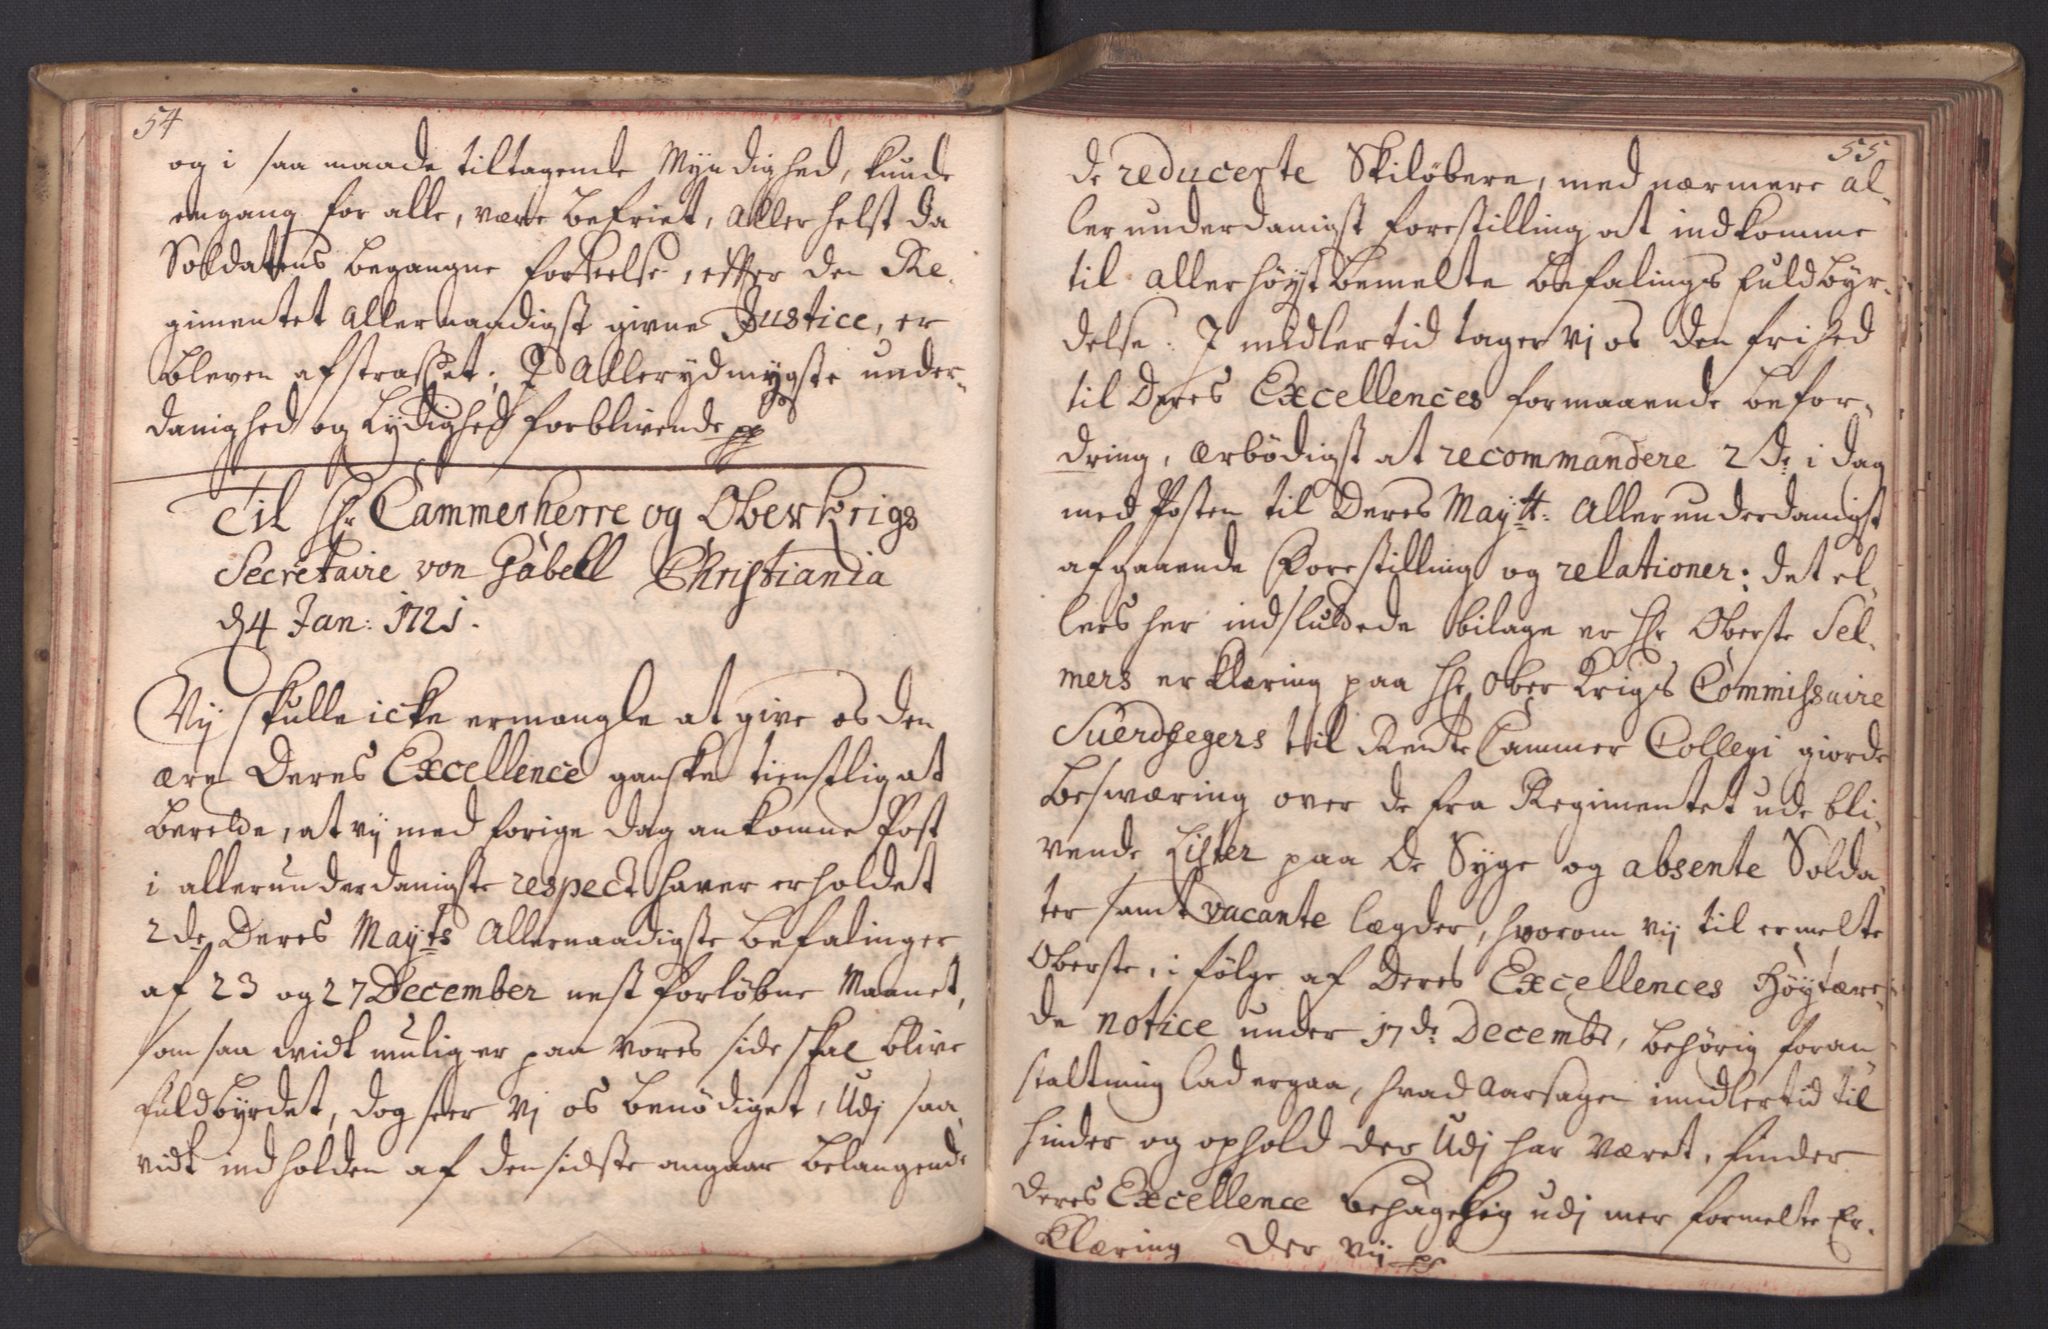 54
og i saa maade tiltagende Myndighed, kunde
engang for alle, være befriet, Aller helst da
Soldatens begangne forseelse, efter den Re-
gimentet Allernaadigst givne Justice, er
bleven afstraffet; I Allerydmygste under-
danighed og Lydighed forblivende pp
Til Hr Cammerherre og Oberkrigs
Secretaire von Gabell Christiania
d 4 Jan: 1721.
Vij skulle icke ermangle at give os den
ære Deres Excellence ganske tienstlig at
berette, at vij med forige dag ankomne Post
i allerunderdanigste respect haver erholdet
2de Deres Mayts Allernaadigste befalinger
af 23 og 27 December nest forløbne Maanet,
som saa vidt mulig er paa vores side skal blive
fuldbyrdet, dog seer vj os benødiget, Udj saa
vidt indholden af den sidste angaar belangende
55
de reducerte Skiløbere, med nærmere al-
lerunderdanigst forestilling at indkomme
til allerhøystbemelte befalings fuldbyr-
delse. I midlertid tager vj os den frihed
til Deres Excellences formaaende befor-
dring, ærbødigst at recommandere 2de i dag
med Posten til Deres Maytt: Allerunderdanigst
afgaaende Forestilling og relationer; det el-
lers her indsluttede bilage er Hr Oberste Sel-
mers erklæring paa Hr Ober Krigs Commissaire
Suerdfegers til Rente Cammer Collegi giorde
besværing over de fra Regimentet ude bli-
vende Lister paa de Syge og absente Solda
ter samt vacante lægder, hvorom vij til ermelte
Oberste, i følge af Deres Excellences Høytære-
de notice under 17de Decembr, behørig foran
staltning lad ergaa, hvad Aarsagen imidlertid til
hinder og ophold der Udj har været, finder
Deres Excellence behagelig udj mer formelte Er-
klæring der vij pp